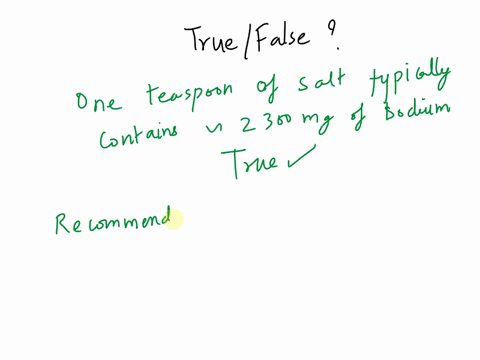 True/False ?
One teaspoon of salt typically
contains ~ 2300 mg of Sodium
True ✓
Recommend